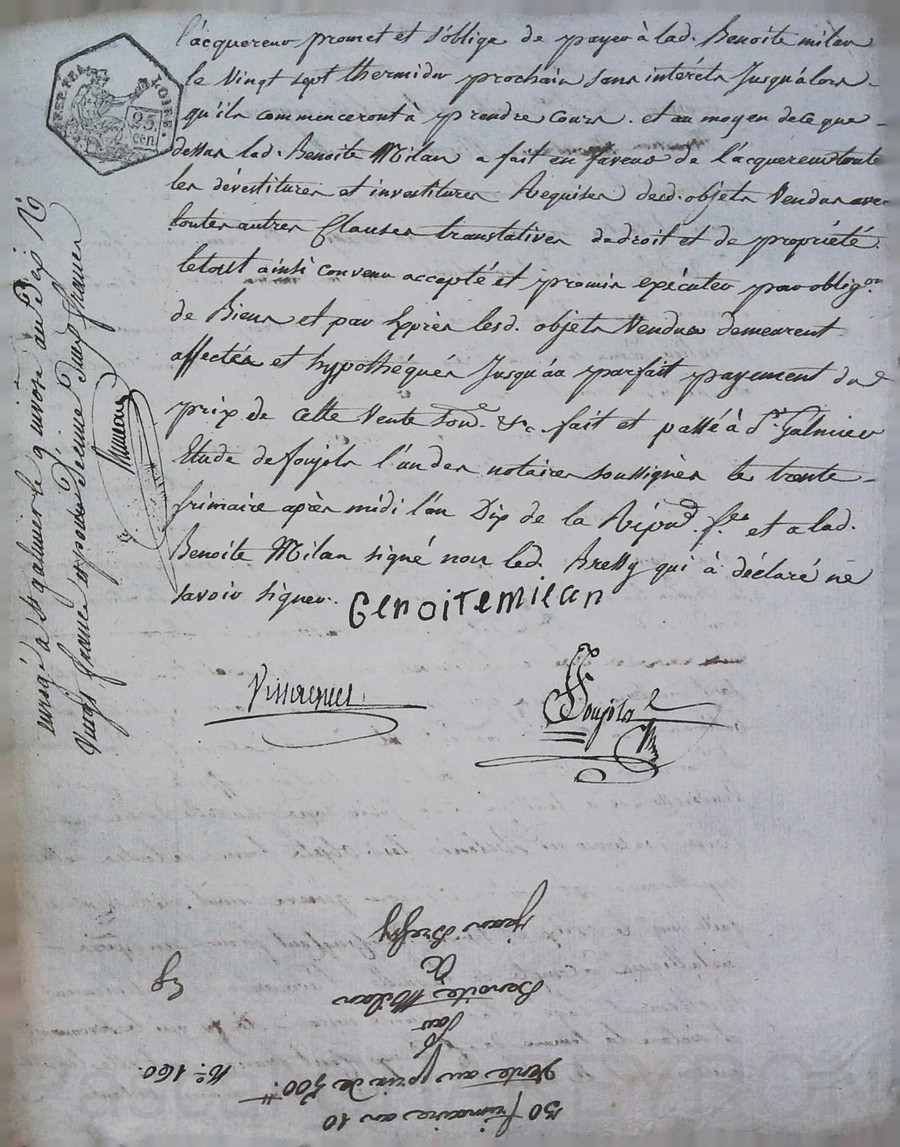 l'acquereur promet et s'oblige de payer à lad. Benoite milan
le vingt sept thermidor prochain sans intérêts Jusqu'alors
qu'ils commenceront à prendre cours. et au moyen de ce que
dessus lad. Benoite Milan a fait en faveur de l'acquereur toute
les dévestitures et investitures Requises desd. objets Vendus avec
toutes autres Clauses translatives de droit et de propriété
le tout ainsi convenu accepté et promis exécuter par oblig.on
de Biens et par Exprès lesd. objets Vendus demeurent
affectés et hypothéqués Jusqu'au parfait payement du
prix de cette Vente &c. fait et passé à St. Galmier
Etude de foujols l'un des notaires soussignés le trente
frimaire après midi l'an Dix de la Répud. f.se et a lad.
Benoite Milan signé non led. Bressy qui à déclaré ne
savoir signer.
Benoitemilan
foujols
REP. FRA.
LOIRE.
25
cen
enrgé à St galmier le nivose an Dix
Vingt francs
30 frimaire an 10
Vente au prix de 500.tt
N.o 160.
par
Benoite Milan
à
jean Bressy